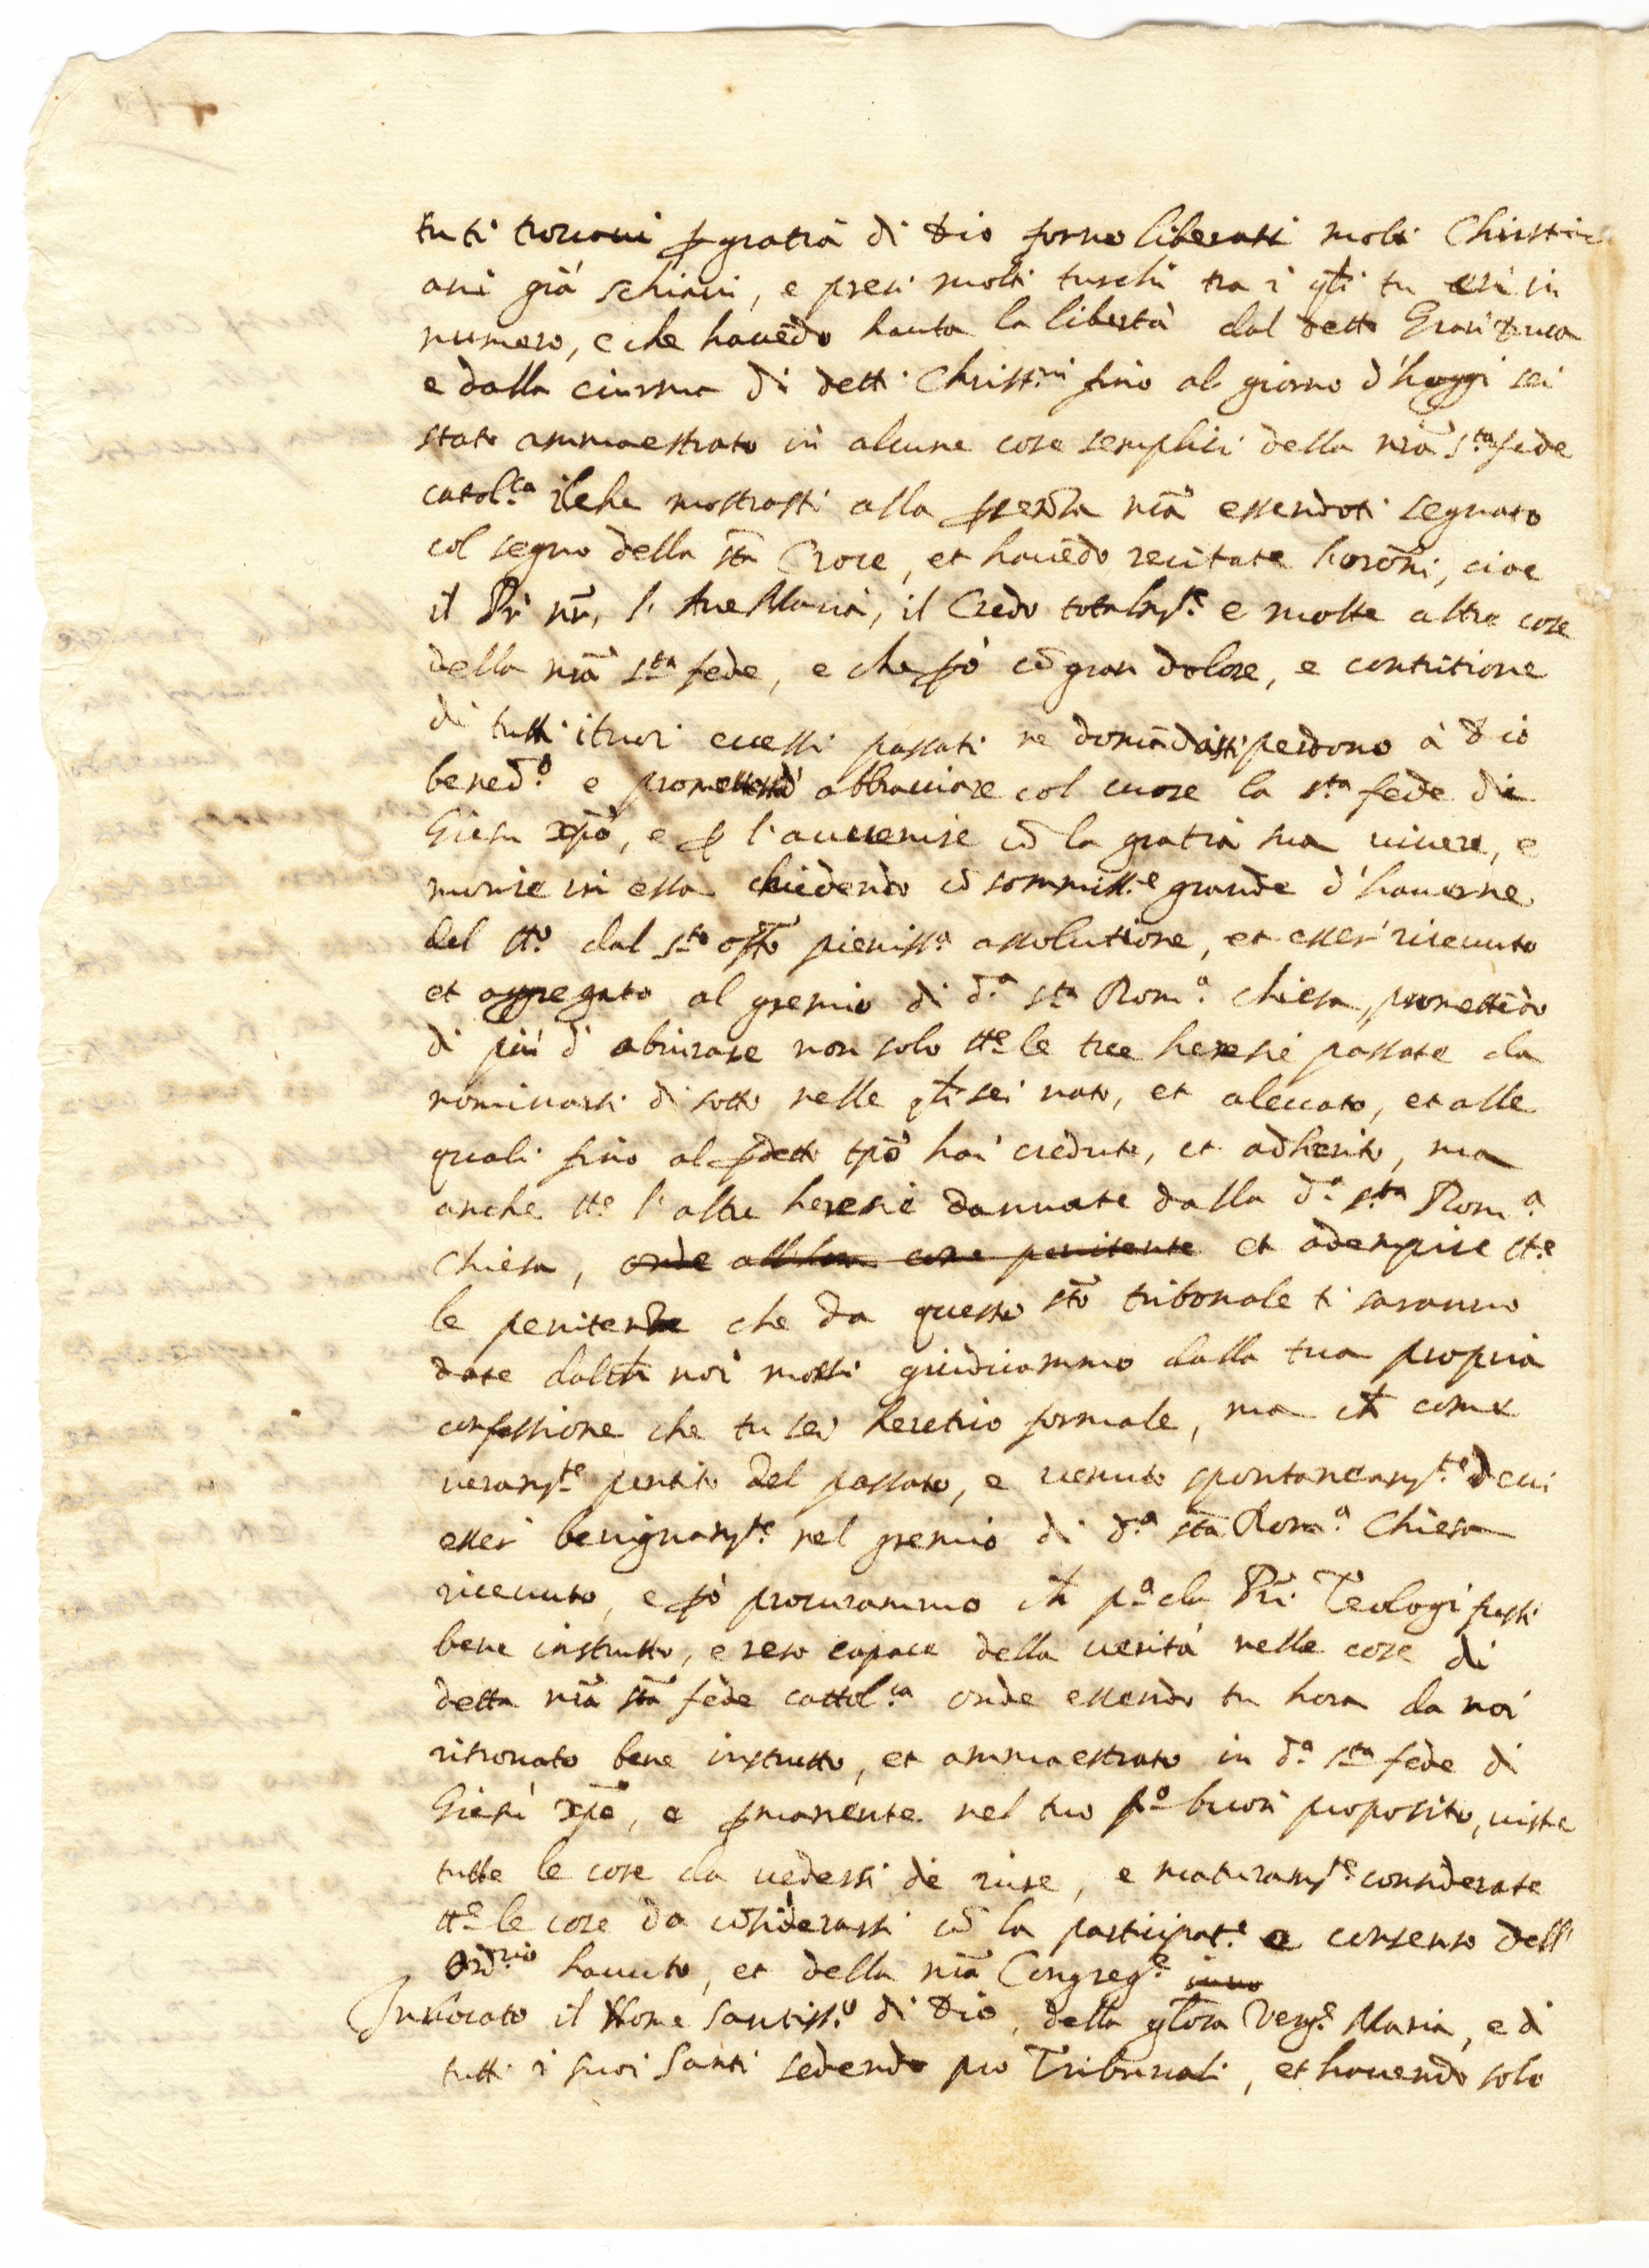 tu ti trovavi p gratia di Dio forno liberati molti Christi
ani già schiavi, e presi molti turchi tra i qli tu eri in
numero, e che havēdo hauta la libertà dal detto Gran Duca
e dalla ciurma di detti Christ.ni fino al giorno d'hoggi sei
stato ammaestrato in alcune cose semplici della nrā s.ta fede
catol.ca ilche mostrasti alla pseñza nrā essendoti segnato
col segno della sta Croce, et havēdo recitate l'orōni, cioe
il Pr nr, l'Ave Maria, il Credo totalm.te e molte altre cose
della nrā s.ta fede, e che pò cō gran dolore, e contritione
di tutti i tuoi eccessi passati ne domādasti perdono à Dio
bened.o e promettendo abbracciare col cuore la s.ta fede di
Giesu xpō, e p l'avvenire cō la gratia sua vivere, e
morire in essa chiedendo cō sommiss.e grande d'haverne
del tt.o dal s.to offo pieniss.a assolutione, et esser ricevuto
et aggregato al gremio di d.a s.ta Rom.a chiesa, promettēdo
di più d'abiurare non solo tt.e le tue heresie passate da
nominarsi di sotto nelle qli sei nato, et alevato, et alle
quali fino al pdetto tpō hai creduto, et adherito, ma
anche tt.e l'altre heresie dannate dalla d.a s.ta Rom.a
chiesa, onde come penitente et adempire tt.e
le penitenze che da questo sto tribonale ti saranno
date dalch noi mossi giudicammo dalla tua propria
confessione che tu sei heretico formale, ma ch come
veram.te pentito del passato, e venuto spontaneam.te devi
esser benignam.te nel gremio di d.a sta Rom.a Chiesa
ricevuto, e pò procurammo ch p.a da Pri Teologi fussi
bene instrutto, e reso capace della verità nelle cose di
detta nrā sta fede cattol.ca onde essendo tu hora da noi
ritrovato bene instrutto, et ammaestrato in d.a s.ta fede di
Giesù xpō, e pmanente nel tuo p.o buon proposito, viste
tutte le cose da vedersi de iure, e maturam.te considerate
tt.e le cose da cōsiderarsi cō la participat.e e consenso dell'
Ord.rio havuto, et della nrā Congreg.e invo
Invocato il Nome Santiss.o di Dio, della glosa Verg.e Maria, e di
tutti i suoi Santi sedendo pro Tribunali, et havendo solo